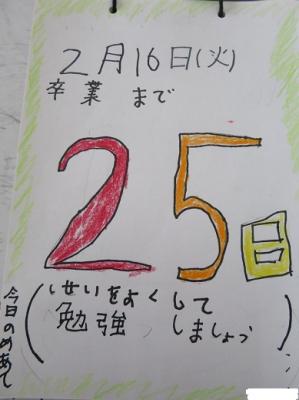 2月16日(火)
卒業まで
25日
今日のめあて
(しせいをよくして
勉強しましょう)